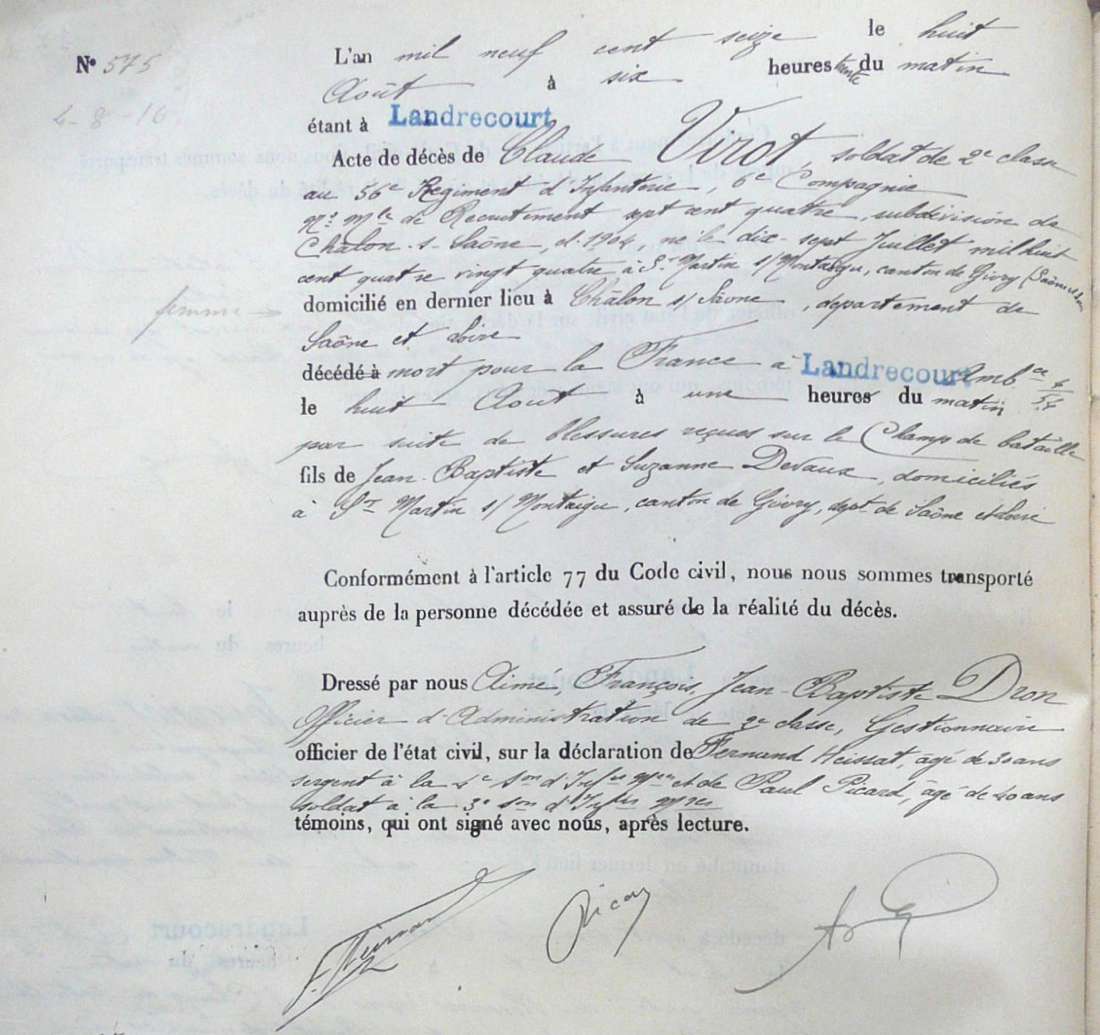 N° 575
4-8-16
L'an mil neuf cent seize le huit
Août à six heures trente du matin
étant à Landrecourt
Acte de décès de Claude Virot soldat de 2e classe
au 56e Régiment d'Infanterie, 6e Compagnie
No Mle de Recrutement sept cent quatre, subdivision de
Châlon-s-Saône, d. 1904, né le dix-sept Juillet mil huit
cent quatre vingt quatre à St Martin s/Montaigu, canton de Givry (Saône et Loire
femme
domicilié en dernier lieu à Châlon s/Saône, département de
Saône et Loire
décédé à mort pour la France à Landrecourt Ambce 4/54
le huit Août à une heures du matin
par suite de blessures reçues sur le Champ de bataille
fils de Jean-Baptiste et Suzanne Devaux, domiciliés
à St Martin s/Montaigu, canton de Givry, dépt de Saône et Loire
Conformément à l'article 77 du Code civil, nous nous sommes transporté
auprès de la personne décédée et assuré de la réalité du décès.
Dressé par nous Aimé, François, Jean-Baptiste Dron
Officier d'Administration de 2e classe, Gestionnaire
officier de l'état civil, sur la déclaration de Fernand Heissat, âgé de 30 ans
sergent à la 4e Son d'Infres Mres et de Paul Picard, âgé de 40 ans
soldat à la 3e Son d'Infres Mres
témoins, qui ont signé avec nous, après lecture.
Picard